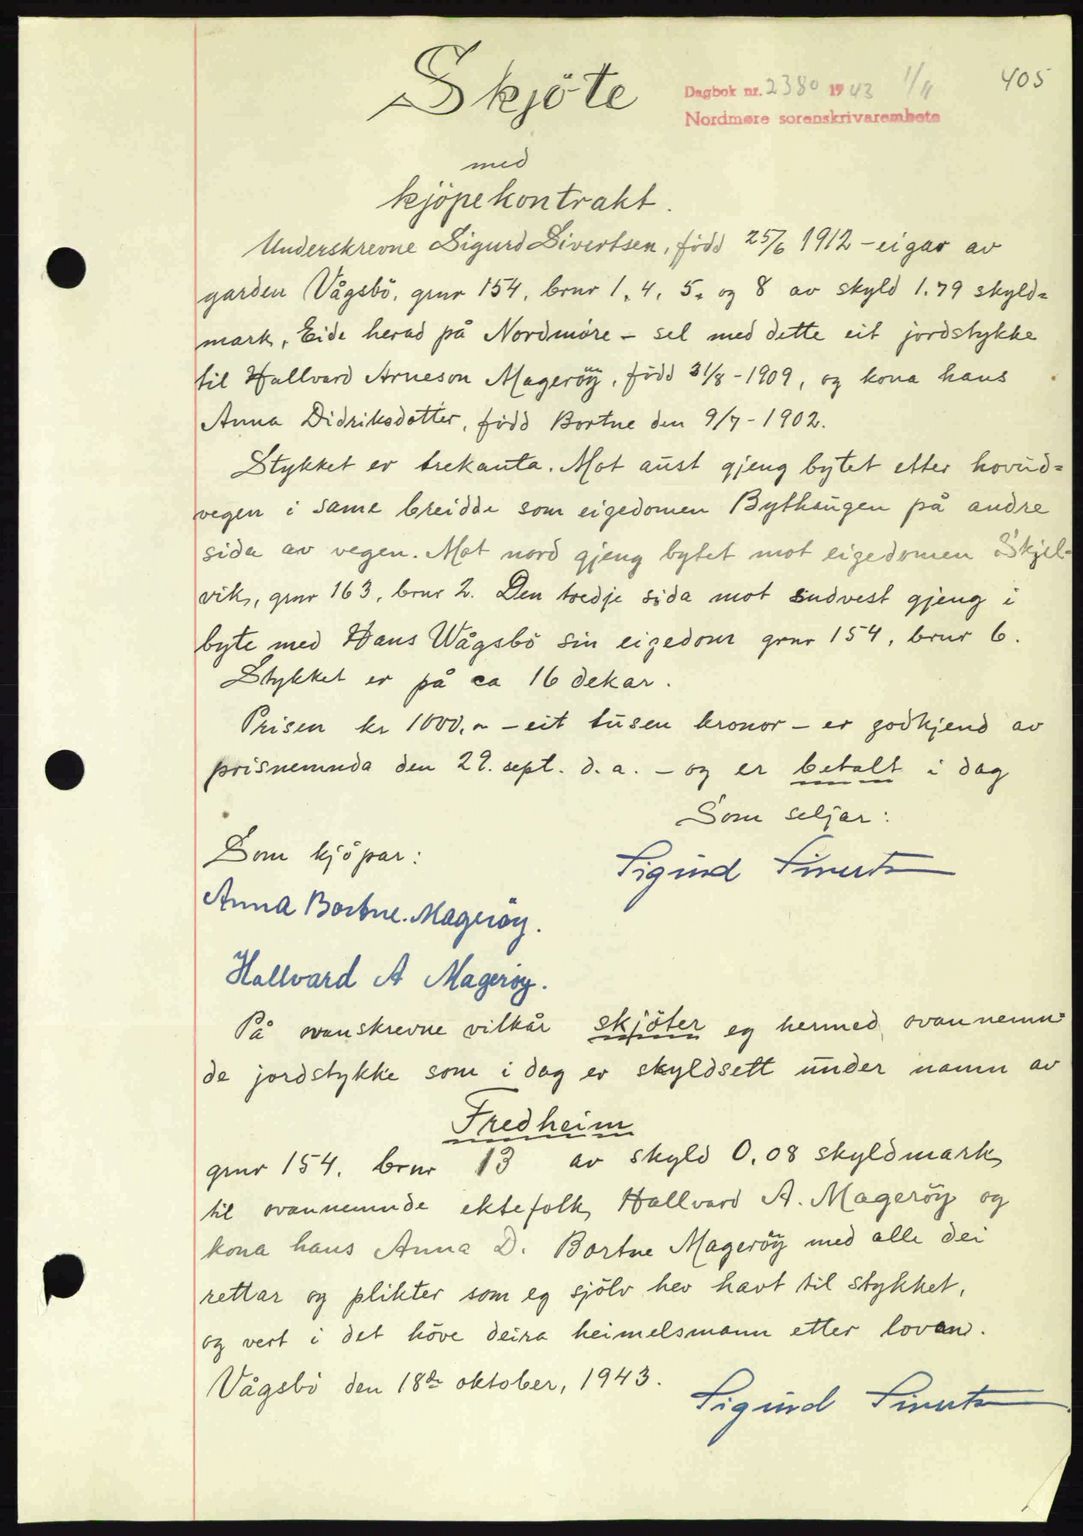 405
Skjöte
Dagbok nr. 2380 1943 1/11
Nordmøre sorenskrivarembete
med
kjöpekontrakt.
Underskrevne Sigurd Sivertsen, född 25/6 1912 - eigar av
garden Vågsbö, gnr 154, bnr 1, 4, 5, og 8 av skyld 1.79 skyld=
mark, Eide herad på Nordmöre - sel med dette eit jordstykke
til Hallvard Arneson Mageröy, född 31/8 - 1909, og kona hans
Anna Didriksdotter, född Bortne den 9/7 - 1902.
Stykket er trekanta. Mot aust gjeng bytet etter hovud=
vegen i same breidde som eigedomen Bythaugen på andre
sida av vegen. Mot nord gjeng bytet mot eigedomen Skjel-
vik, gnr 163, bnr 2. Den tredje sida mot sudvest gjeng i
byte med Hans Wågsbö sin eigedom gnr 154, bnr 6.
Stykket er på ca 16 dekar.
Prisen kr 1000,- - eit tusen kronor - er godkjend av
prisnemnda den 29. sept. d. a. - og er betalt i dag
Som seljar:
Som kjöpar:
Sigurd Siverts
Anna Bortne. Magerøy.
Hallvard A Magerøy.
På ovanskrevne vilkår skjöter eg hermed ovannemn=
de jordstykke som i dag er skyldsett under namn av
Fredheim
gnr 154, bnr 13 av skyld 0,08 skyldmark,
til ovannemnde ektefolk, Hallvard A. Magerøy og
kona hans Anna D. Bortne Magerøy med alle dei
rettar og plikter som eg sjölv hev havt til stykket,
og vert i det höve deira heimelsmann etter loven.
Vågsbö den 18de oktober, 1943.
Sigurd Siverts